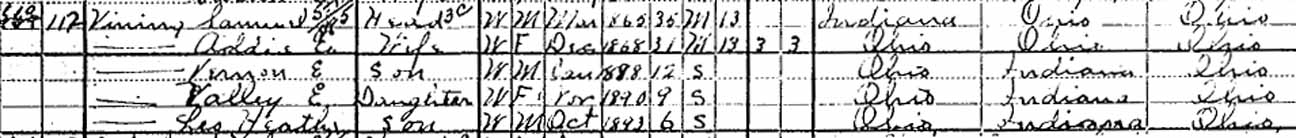 112 Vining Samuel Head W M Mar 1865 35 M 13 Indiana Ohio Ohio
Addie E Wife W F Dec 1868 31 M 13 3 3 Ohio Ohio Ohio
Vernon E Son W M Jan 1888 12 S Ohio Indiana Ohio
Valley E Daughter W F 1890 9 S Ohio Indiana Ohio
Leo Heatly Son W M Oct 1893 6 S Ohio Indiana Ohio